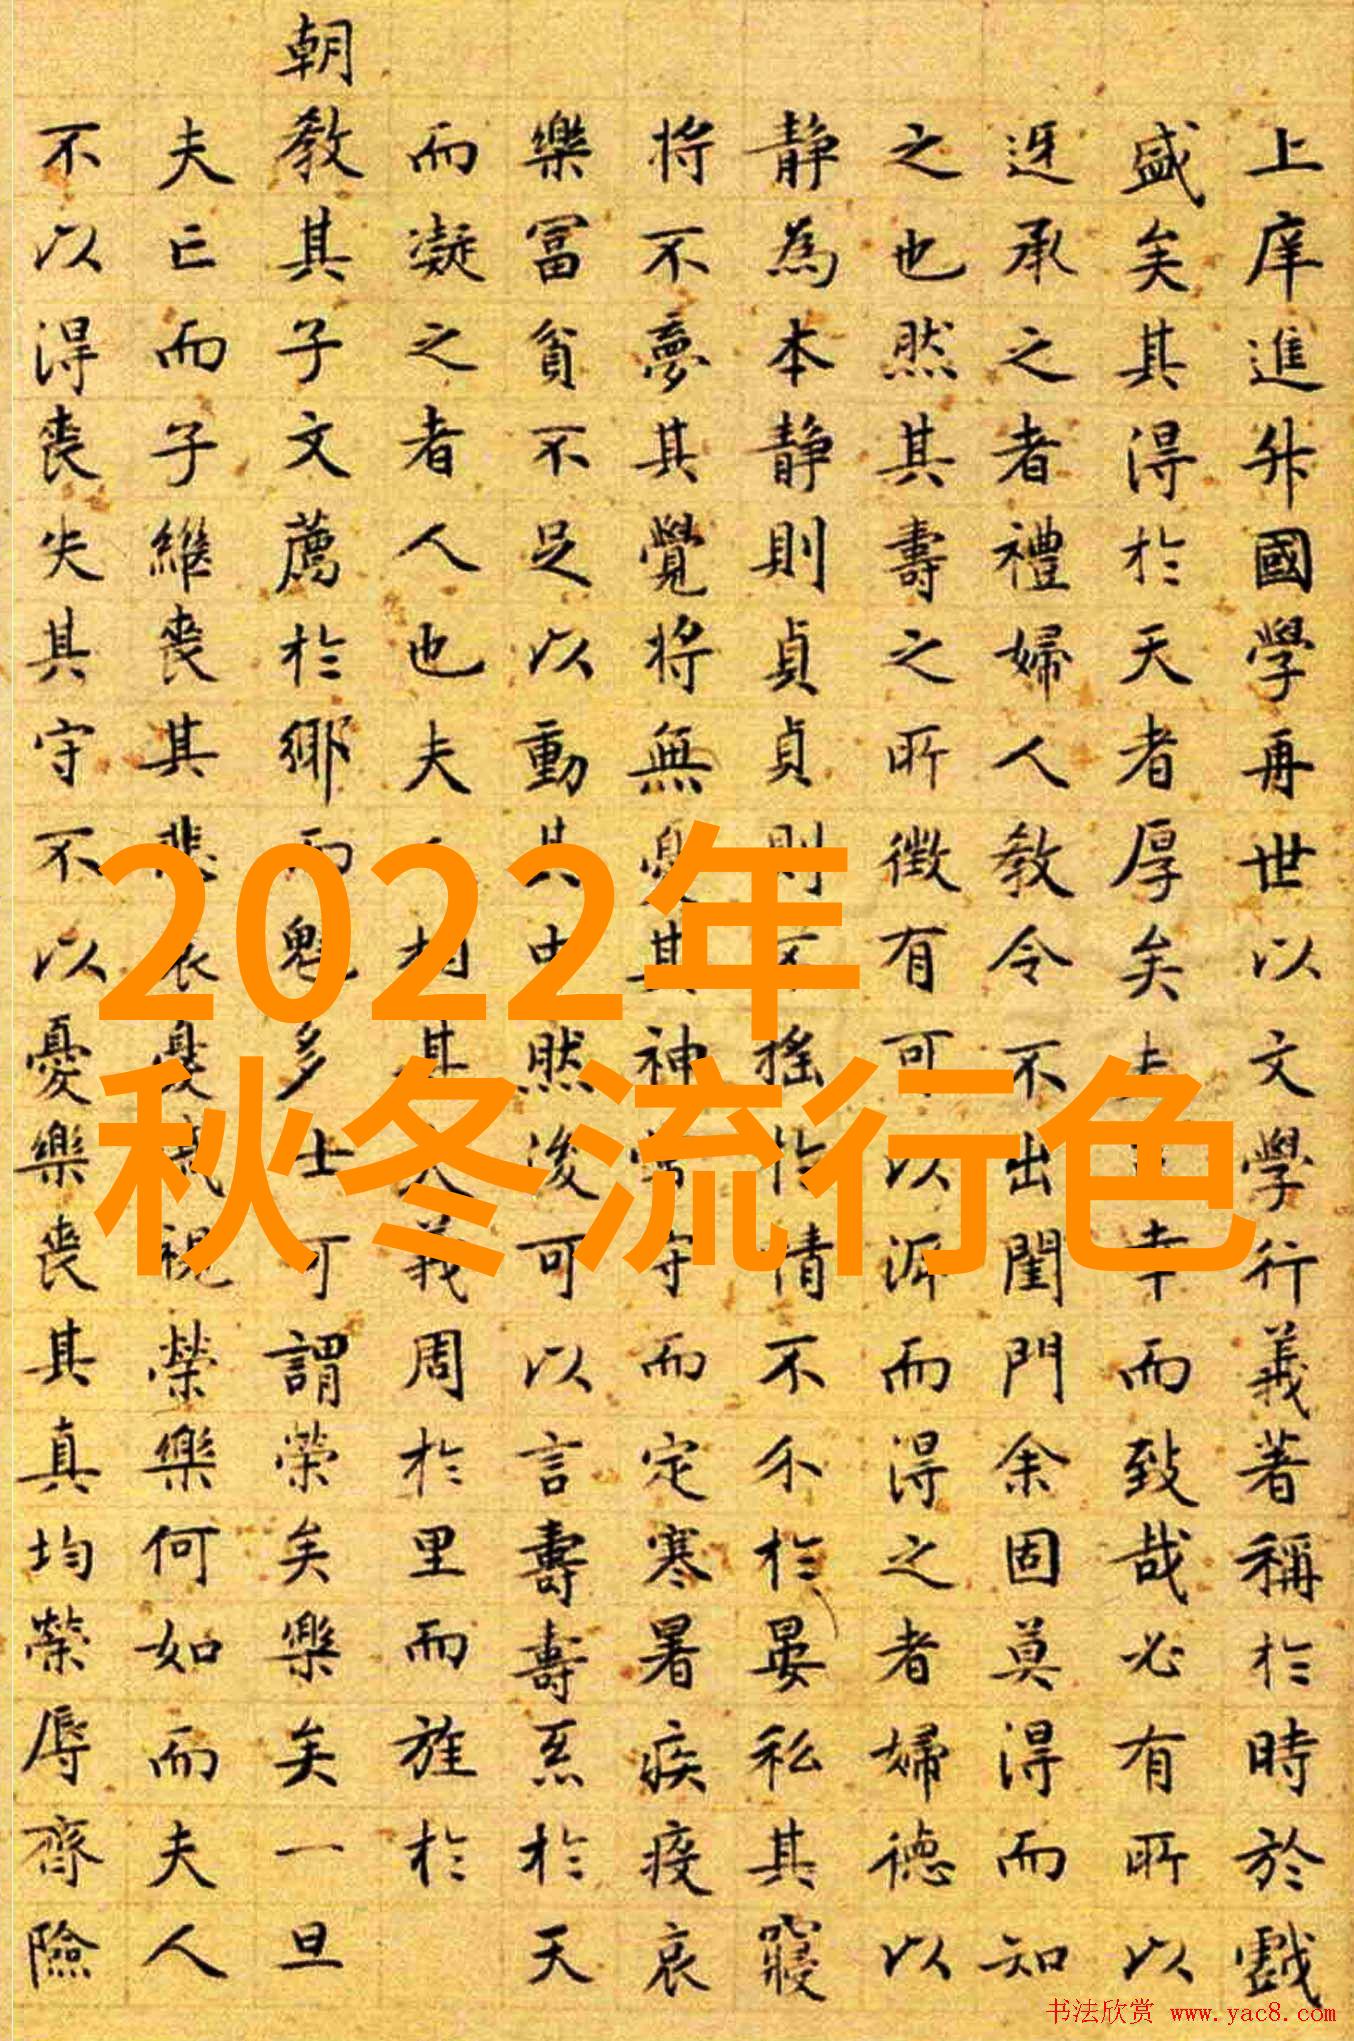 上庠進升國學再世以文學行義著稱於時於戲
盛矣其得於天者厚矣夫幸而致哉必有所以
迓承之者禮婦人教令不出閨門余固莫得而知
之也然其壽之所徵有可以泝而得之者婦德以
静為本静則貞貞則不搖於情不分於晏私其寢
将不夢其覺将無憂其神守而定寒暑疾疫哀
樂冨貧不足以動其中然後可以言壽壽系於天
而凝之者人也夫人相其夫義周於里而旌於
朝教其子文薦於鄉而魁多士可謂榮矣樂矣一旦
夫亡而子繼喪其悲哀憂戚視榮樂何如而夫人
不以得喪失其守不以憂樂喪其真均榮辱齊險
2022年
秋冬流行色
书法欣赏 www.yac8.com